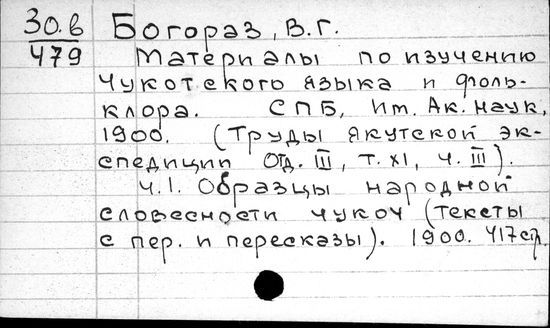 30.в Богораз, В.Г.
479 Материалы по изучению
чукотского языка и фоль-
клора. СПБ, Им. Ак. наук,
1900. (Труды якутской эк-
спедиции Отд. III, т. XI, ч. III).
ч.I. Образцы народной
словесности чукоч (тексты
с пер. и пересказы). 1900. 417 стр.